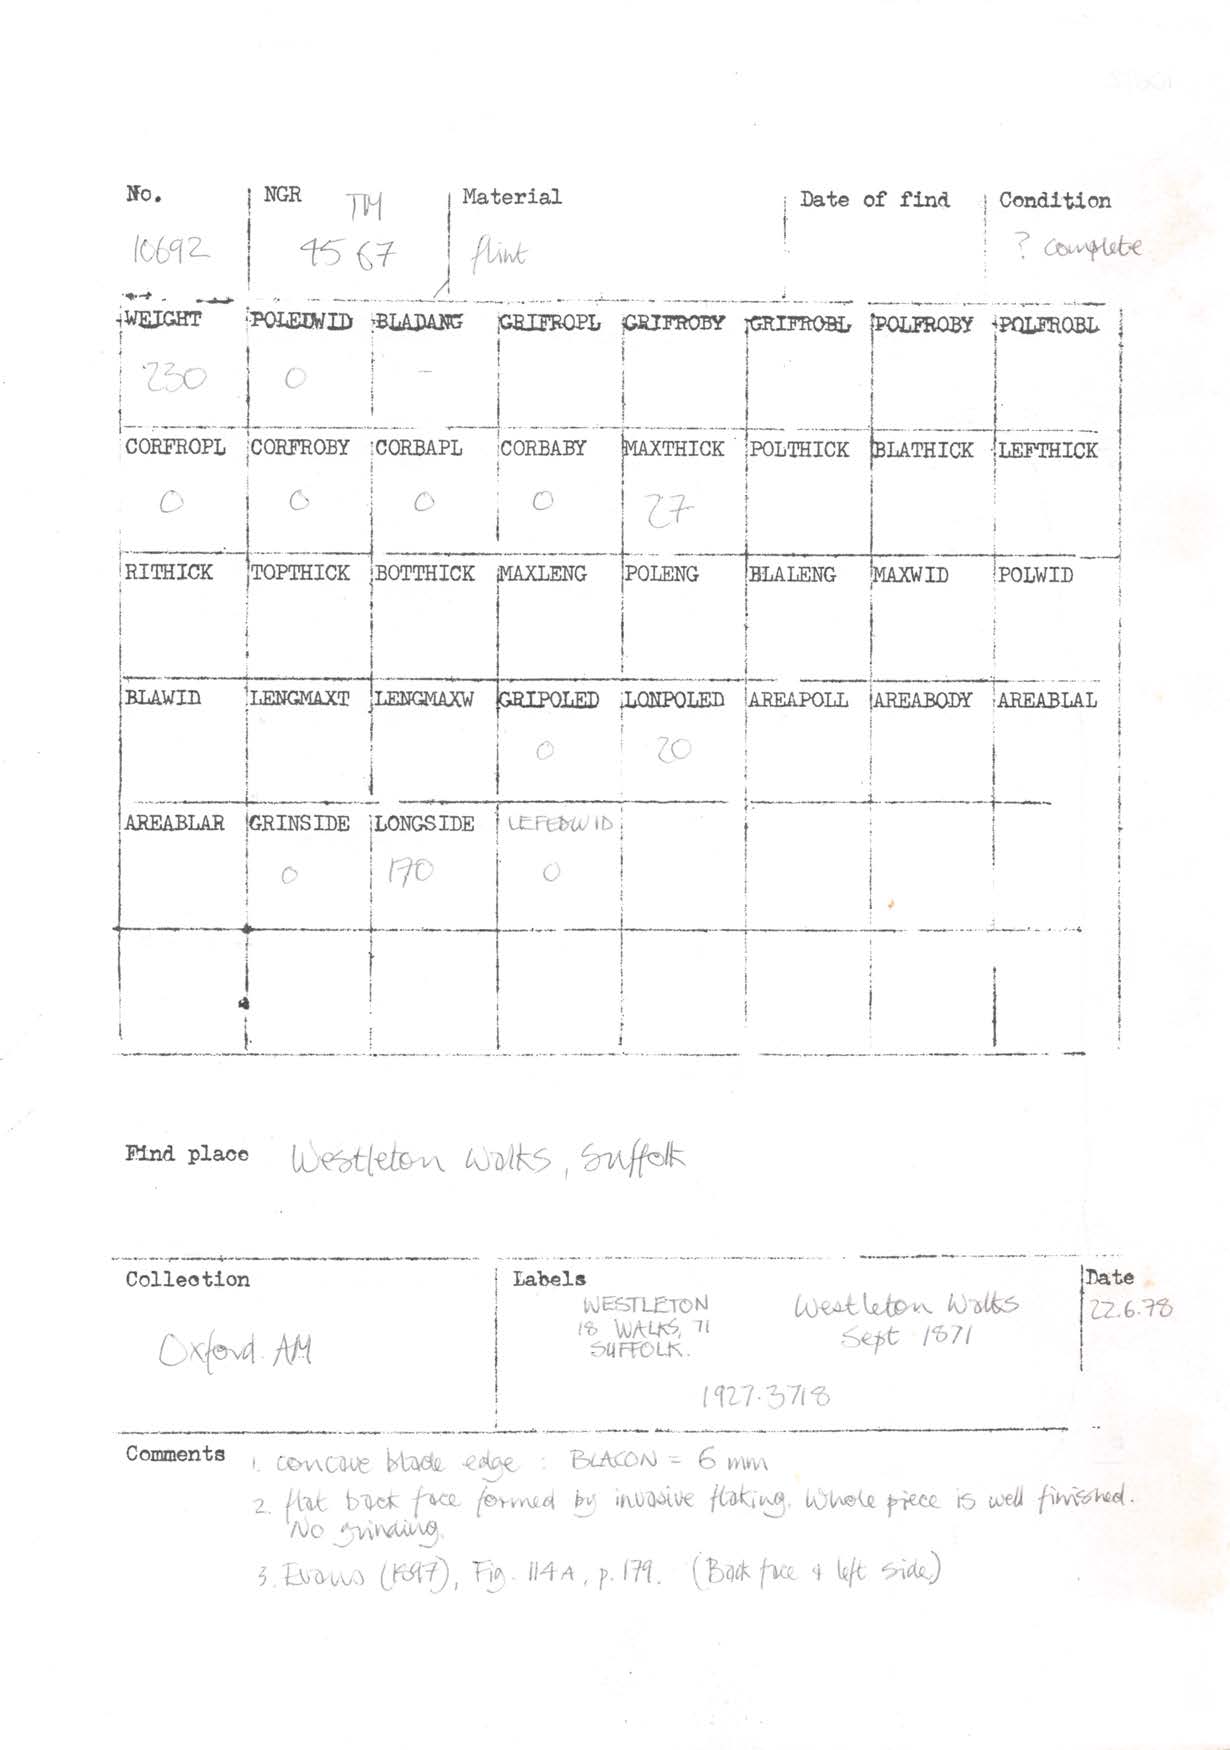 No. NGR TM Material Date of find Condition
10692 45 67 flint ? complete
WEIGHT POLEDWID BLADANG GRIFROPL GRIFROBY GRIFROBL POLFROBY POLFROBL
230 0 -
CORFROPL CORFROBY CORBAPL CORBABY MAXTHICK POLTHICK BLATHICK LEFTHICK
0 0 0 0 27
RITHICK TOPTHICK BOTTHICK MAXLENG POLENG BLALENG MAXWID POLWID
BLAWID LENGMAXT LENGMAXW GRIPOLED LONPOLED AREAPOLL AREABODY AREABLAL
0 20
AREABLAR GRINSIDE LONGSIDE LEFEDWID
0 170 0
Find place Westleton Walks, Suffolk
Collection Labels Date
WESTLETON Westleton Walks 22.6.78
18 WALKS, 71 Sept 1871
SUFFOLK.
Oxford. AM
1927.3718
Comments 1. concave blade edge : BLACON = 6 mm
2. flat back face formed by invasive flaking. Whole piece is well finished.
No grinding.
3. Evans (1897), Fig. 114A, p.179. (Back face & left side)